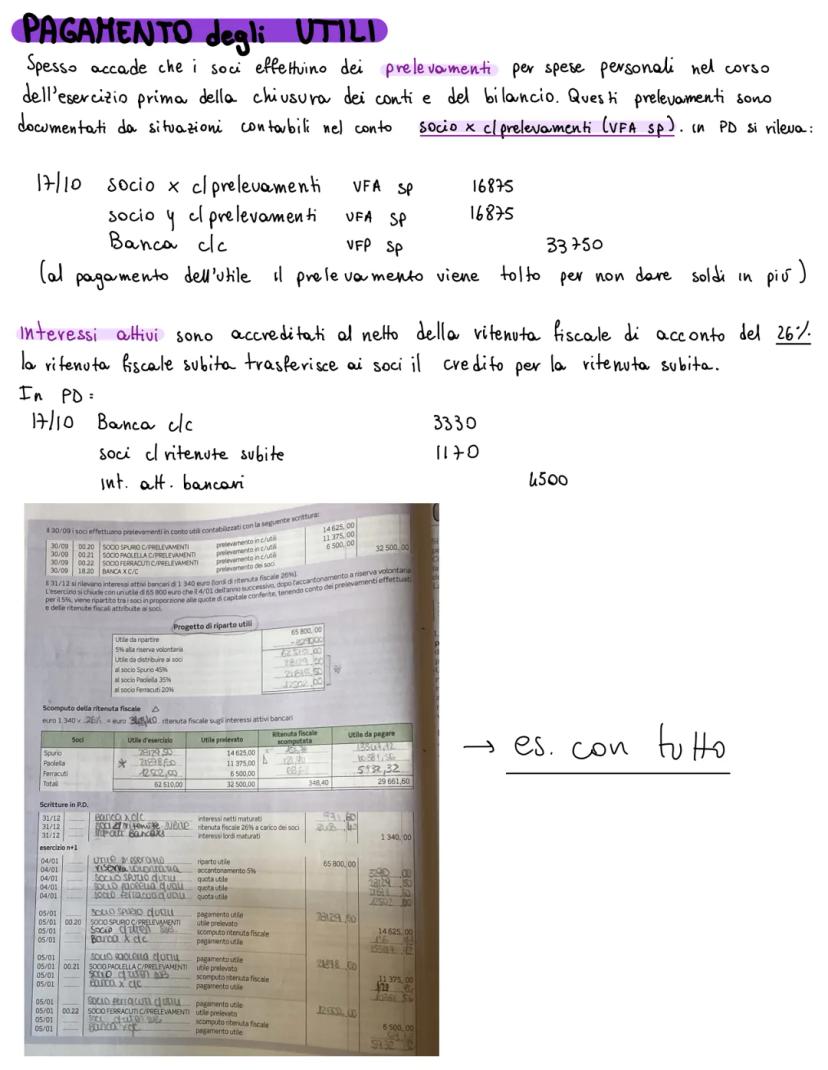 PAGAMENTO degli UTILI
Spesso accade che i soci effettuino dei prelevamenti per spese personali nel corso
dell'esercizio prima della chiusura dei conti e del bilancio. Questi prelevamenti sono
documentati da situazioni contabili nel conto socio x c/prelevamenti (VFA sp). in PD si rileva:
17/10 socio x c/prelevamenti VFA sp 16875
socio y c/prelevamenti VFA sp 16875
Banca c/c VFP sp 33750
(al pagamento dell'utile il prelevamento viene tolto per non dare soldi in più)
Interessi attivi sono accreditati al netto della ritenuta fiscale di acconto del 26%.
la ritenuta fiscale subita trasferisce ai soci il credito per la ritenuta subita.
In PD:
17/10 Banca c/c 3330
soci c/ritenute subite 1170
int. att. bancari 4500
Il 30/09 i soci effettuano prelevamenti in conto utili contabilizzati con la seguente scrittura:
30/09 00.20 SOCIO SPURIO C/PRELEVAMENTI prelevamento in c/utili 14 625,00
30/09 00.21 SOCIO PAOLELLA C/PRELEVAMENTI prelevamento in c/utili 11 375,00
30/09 00.22 SOCIO FERRACUTI C/PRELEVAMENTI prelevamento in c/utili 6 500,00
30/09 18.20 BANCA X C/C prelevamento dei soci 32 500,00
Il 31/12 si rilevano interessi attivi bancari di 1 340 euro (lordi di ritenuta fiscale 26%).
L'esercizio si chiude con un utile di 65 800 euro che il 4/01 dell'anno successivo, dopo l'accantonamento a riserva volontaria
per il 5%, viene ripartito tra i soci in proporzione alle quote di capitale conferite, tenendo conto dei prelevamenti effettuati
e delle ritenute fiscali attribuite ai soci.
Progetto di riparto utili
Utile da ripartire 65 800,00
5% alla riserva volontaria
Utile da distribuire ai soci
al socio Spurio 45%
al socio Paolella 35%
al socio Ferracuti 20%
Scomputo della ritenuta fiscale
euro 1.340 x 26% = euro ritenuta fiscale sugli interessi attivi bancari
Soci Utile d'esercizio Utile prelevato Ritenuta fiscale scomputata Utile da pagare
Spurio 14 625,00
Paolella 11 375,00
Ferracuti 6 500,00 5932,32
Totali 62 510,00 32 500,00 348,40 29 661,60
→ es. con tutto
Scritture in P.D.
31/12 Banca x c/c interessi netti maturati
31/12 ritenuta fiscale 26% a carico dei soci
31/12 interessi lordi maturati 1 340,00
esercizio n+1
04/01 riparto utile 65 800,00
04/01 accantonamento 5%
04/01 quota utile
04/01 quota utile
04/01 quota utile
05/01 pagamento utile
05/01 00.20 SOCIO SPURIO C/PRELEVAMENTI utile prelevato 14 625,00
05/01 scomputo ritenuta fiscale
05/01 Banca x c/c pagamento utile
05/01 pagamento utile
05/01 00.21 SOCIO PAOLELLA C/PRELEVAMENTI utile prelevato 11 375,00
05/01 scomputo ritenuta fiscale
05/01 Banca x c/c pagamento utile
05/01 pagamento utile
05/01 00.22 SOCIO FERRACUTI C/PRELEVAMENTI utile prelevato 6 500,00
05/01 scomputo ritenuta fiscale
05/01 pagamento utile